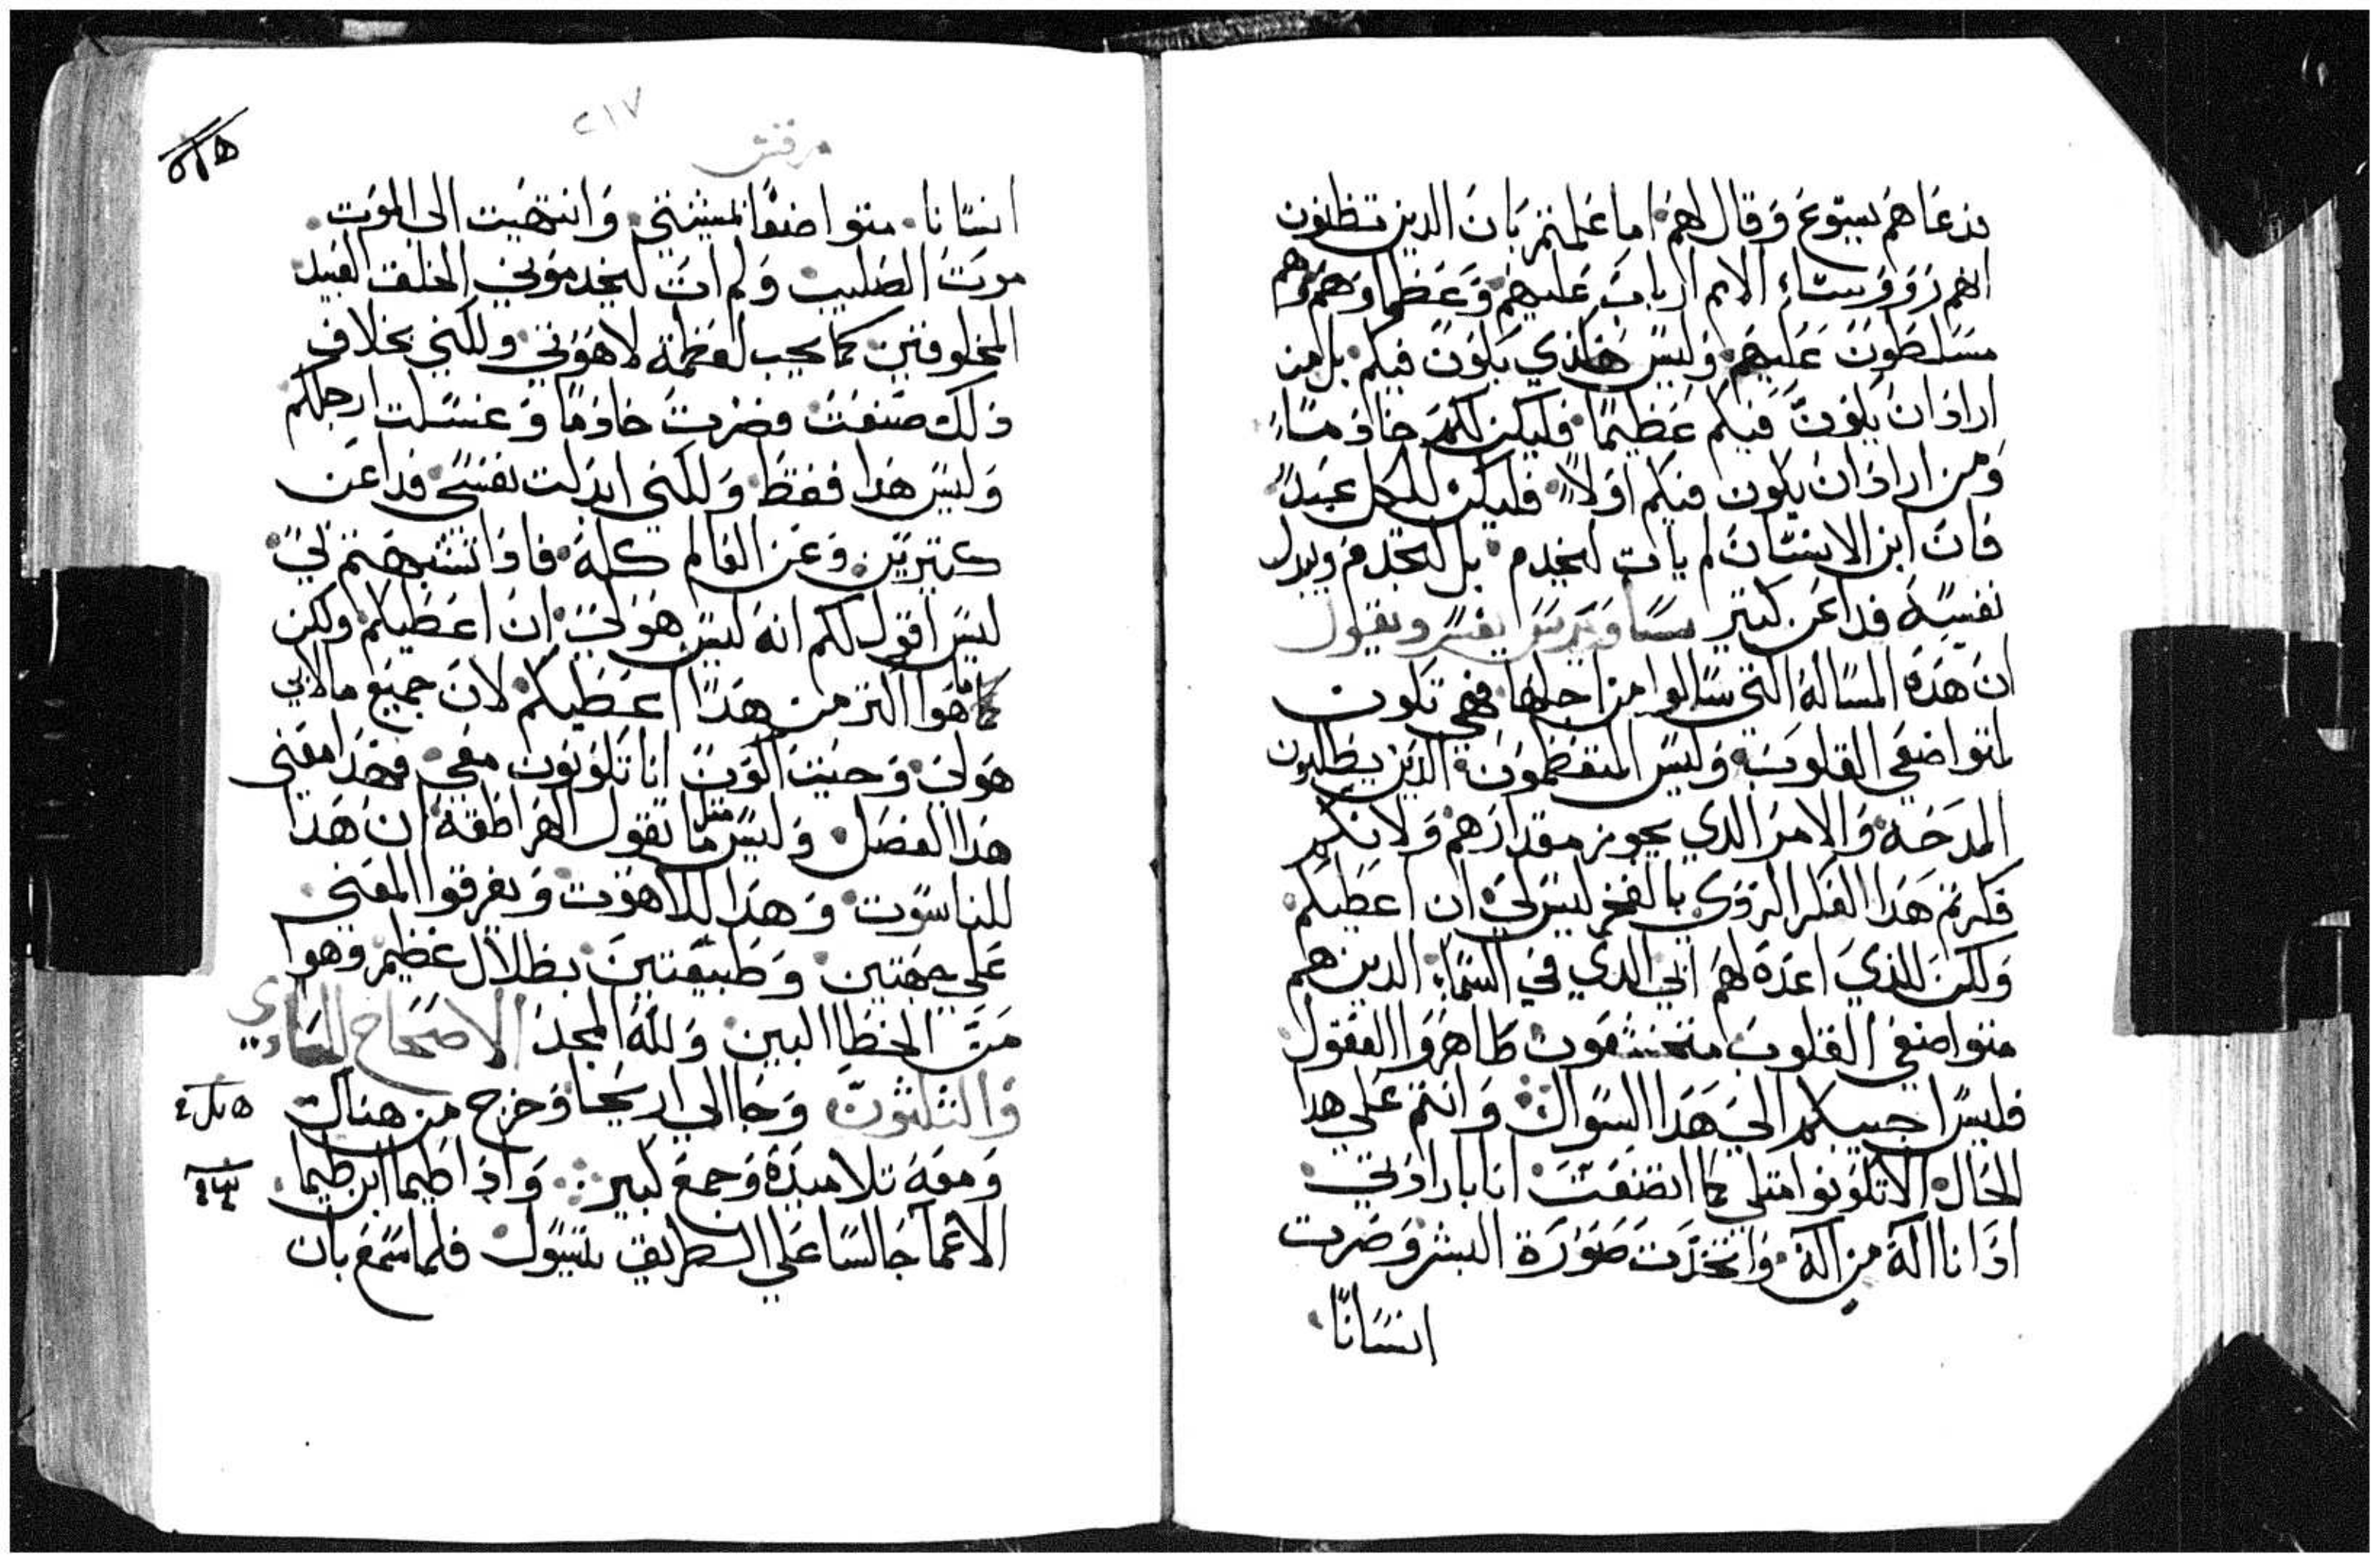 فدعاهم يسوع وقال لهم اما علمتم بان الدين تظنون
انهم روؤستاء الامم ارباب عليهم وعظماوهم هم
مسلطون عليهم وليس هكذي يكون فيكم بل من
اراد ان يكون فيكم عظيما فليكن لكم خادما
ومن اراد ان يكون فيكم اولا فليكن للكل عبدا
فان ابن الانسان لم يات ليخدم بل ليخدم ويبدل
نفسه فدا عن كتير يفسر ويقول
ان هده المساله التي سالوا من اجلها فهي تكون
لمتواضعي القلوب وليس المتعظمون الدين يطلبون
المدحه والامر الدي يجوز مقدارهم ولانكم
فكرتم هدا الفكر الردي بالفخر ليس لي ان اعطيكم
ولكن للذي اعده لهم ابي الدي في السماء الدين هم
متواضعي القلوب متخشعون طاهروا العقول
فليس اجيبكم الي هدا السوال وانتم علي هدا
الحال الا تكونوا متلي كما اتضعت انا بارادتي
اذ انا اله من اله واتخدت صورة البشر وصرت
انسانا
٢١٧
مرقس
انسانا متواضعا بمشيتي وانتهيت الى الموت
موت الصليب ولم ات ليخدموني الخلق العبيد
المخلوقين كما يجب لعظمة لاهوتي ولكني بخلاف
ذلك صنعت فصرت خادما وغسلت ارجلكم
وليس هدا فقط ولكني ابدلت نفسي فدا عن
كتيرين وعن العالم كله فاذا تشبهتم بي
ليس اقول لكم انه ليس هو لي ان اعطيكم ولكن
ما هوا اكتر من هدا اعطيكم لان جميع ما لابي
هو لي وحيت اكون انا تكونون معي فهدا معني
هدا الفصل وليس مثل ما تقول الهراطقه ان هدا
للناسوت وهدا للاهوت ويفرقوا المعني
علي جهتين وطبيعتين بظلال عظيم وهوا
من الخطا البين ولله المجد الاصحاح السادس
والثلثون وجا الي اريحا وخرج من هناك
ومعه تلاميده وجمع كبير واذا طيما ابن طيما
الاعما جالسا علي الطريق يتسول فلما سمع بان